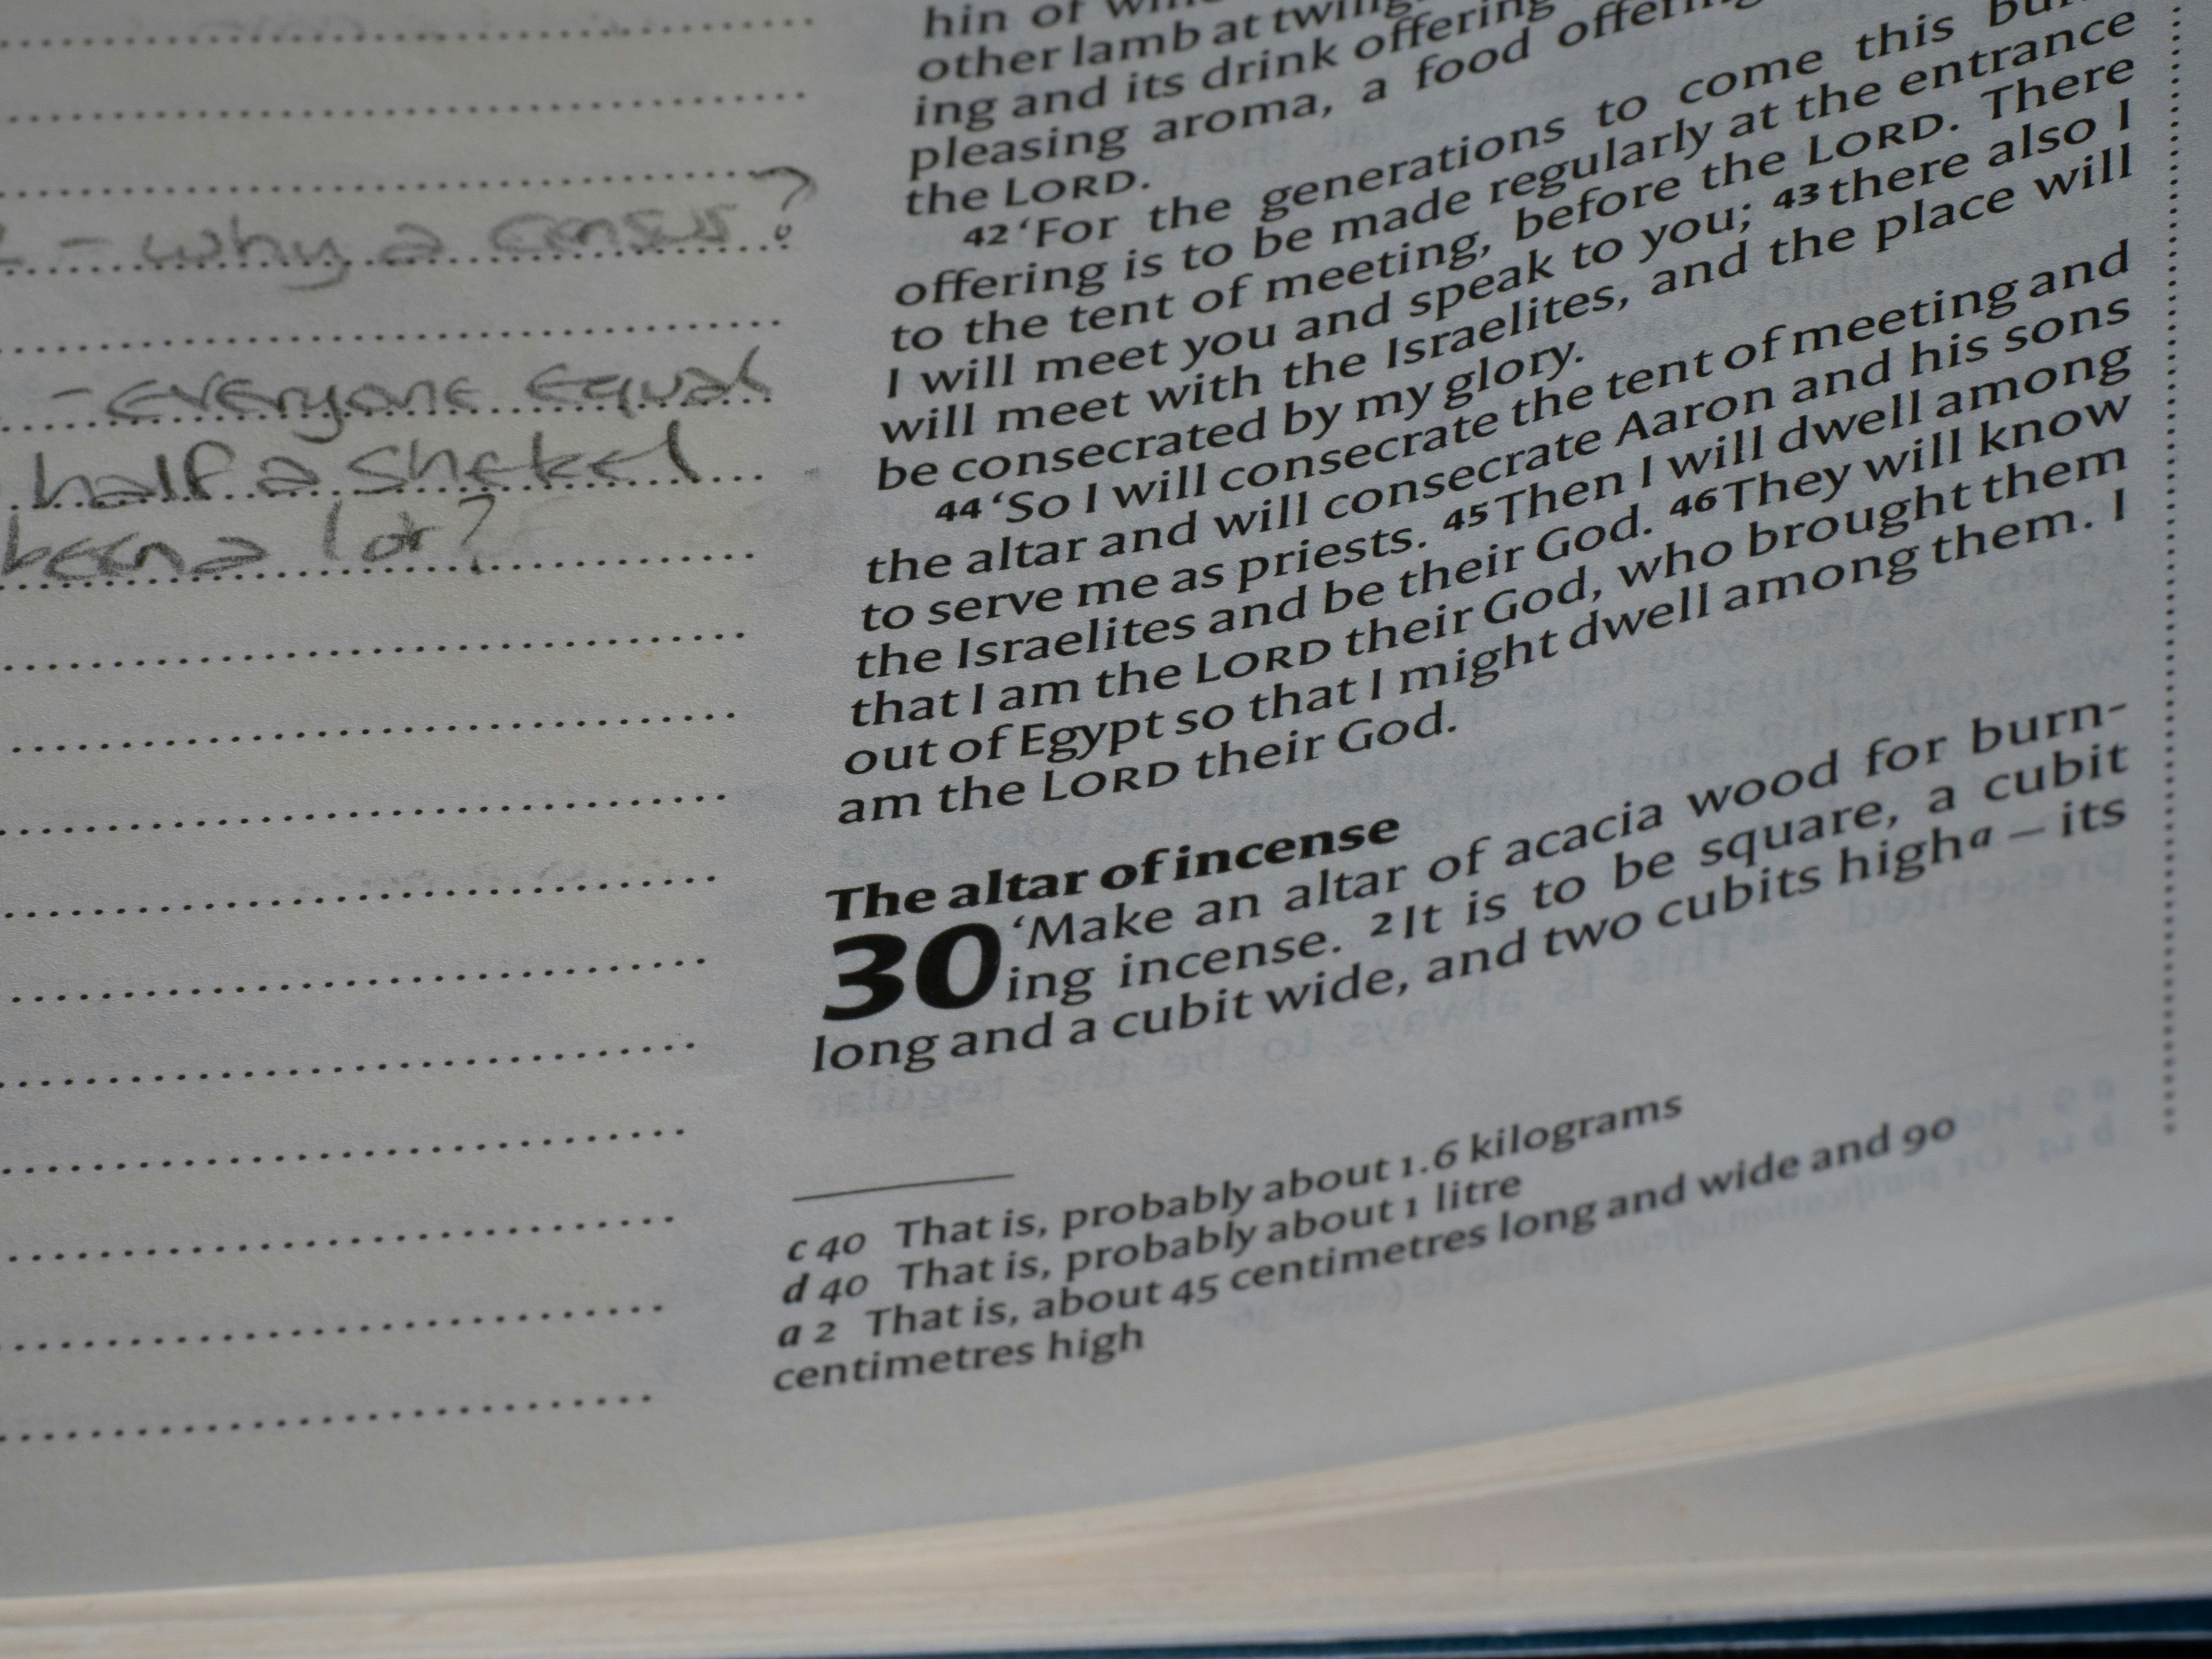 - why a census?
- everyone equal
half a shekel
been a lot?
hin of
other lamb at
ing and its drink offering
pleasing aroma, a food
the LORD.
42 ‘For the generations to come this
offering is to be made regularly at the entrance
to the tent of meeting, before the LORD. There
I will meet you and speak to you; 43 there also I
will meet with the Israelites, and the place will
be consecrated by my glory.
44 ‘So I will consecrate the tent of meeting and
the altar and will consecrate Aaron and his sons
to serve me as priests. 45 Then I will dwell among
the Israelites and be their God. 46 They will know
that I am the LORD their God, who brought them
out of Egypt so that I might dwell among them. I
am the LORD their God.
The altar of incense
30 ‘Make an altar of acacia wood for burn-
ing incense. 2 It is to be square, a cubit
long and a cubit wide, and two cubits high a – its
c 40 That is, probably about 1.6 kilograms
d 40 That is, probably about 1 litre
a 2 That is, about 45 centimetres long and wide and 90
centimetres high